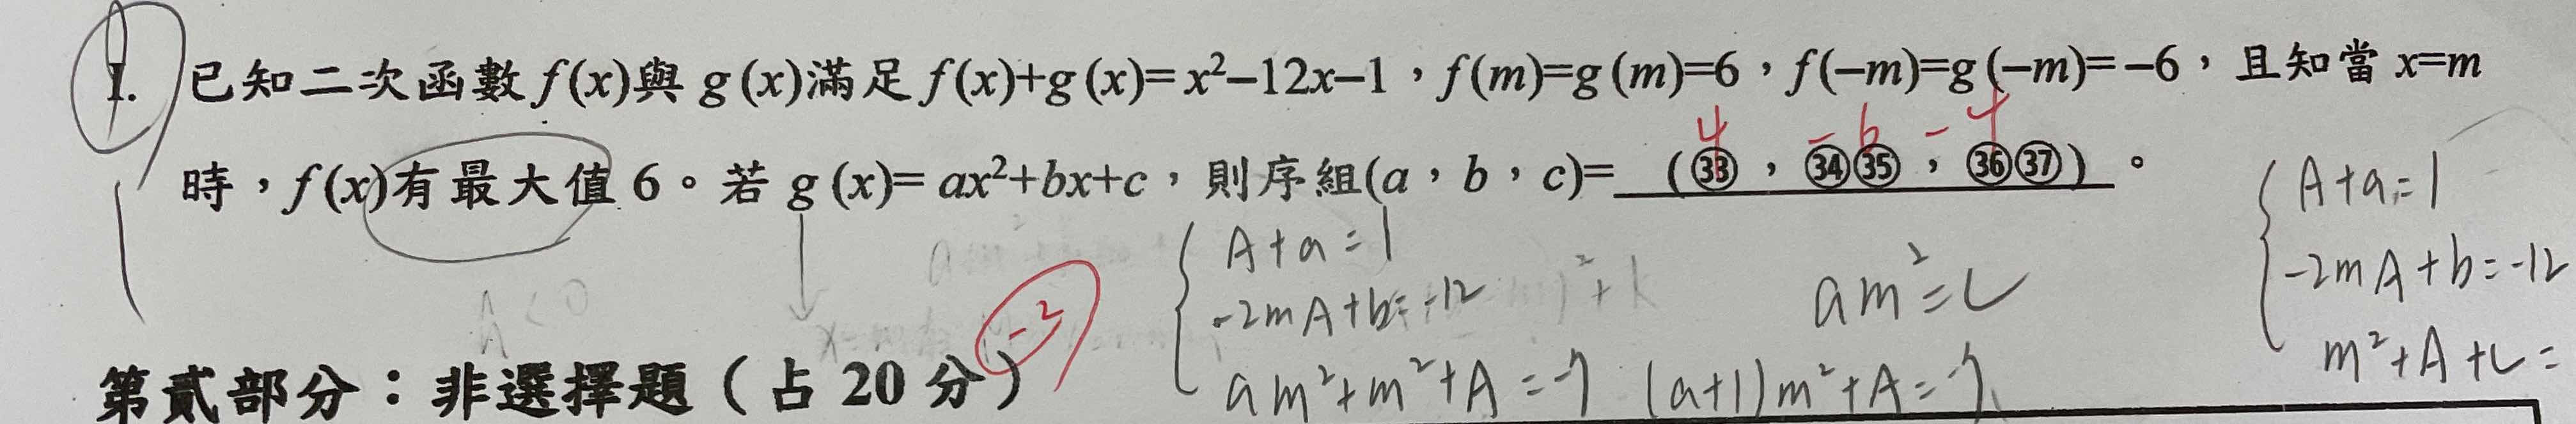 I. 已知二次函數 f(x)與 g(x)滿足 f(x)+g(x)= x²–12x–1，f(m)=g(m)=6，f(–m)=g(–m)= –6，且知當 x=m
4 -6 -4
時，f(x)有最大值 6。若 g(x)= ax²+bx+c，則序組(a，b，c)= (㉝，㉞㉟，㊱㊲)。
A+a=1
-2mA+b=-12
am²+m²+A=-7
am²=c
(a+1)m²+A=-7
A+a=1
-2mA+b=-12
m²+A+c=
-2
第貳部分：非選擇題（占 20 分）